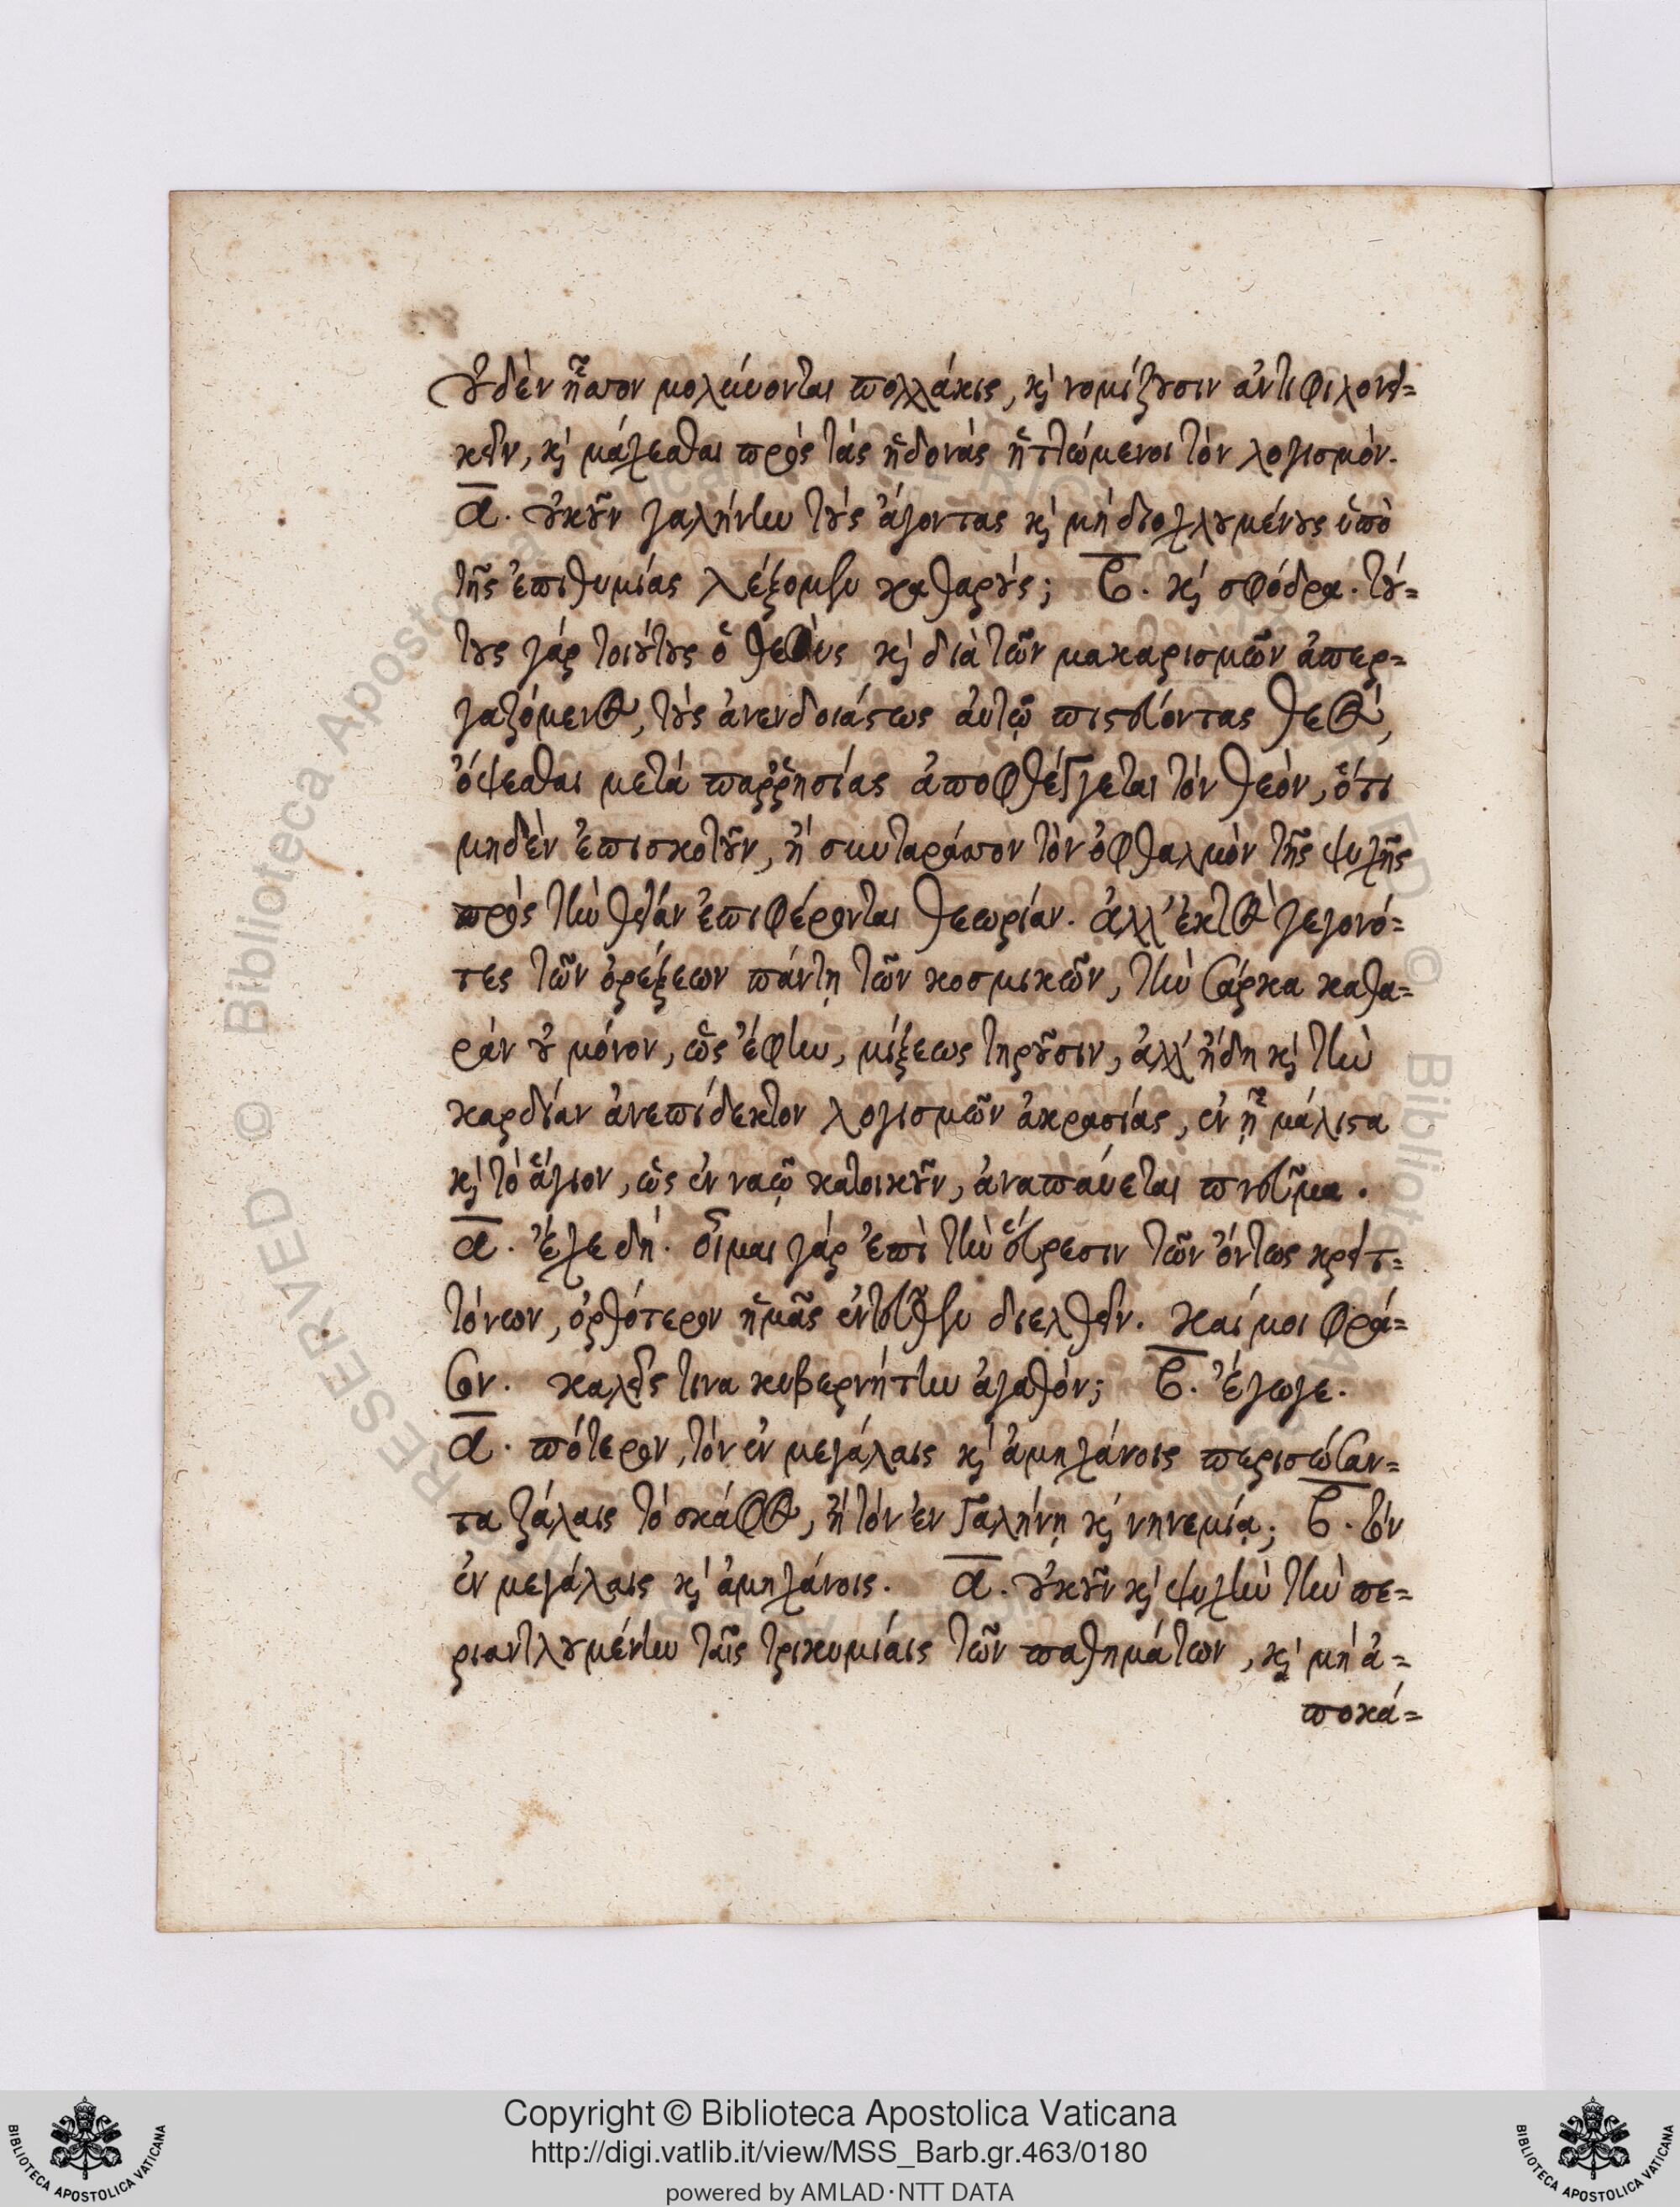 οὐδὲν ἧττον μολύνονται πολλάκις, καὶ νομίζουσιν ἀντιφιλονει=
κεῖν, καὶ μάχεσθαι πρὸς τὰς ἡδονὰς ἡττώμενοι τὸν λογισμόν.
α. οὐκοῦν γαλήνην τοὺς ἄγοντας καὶ μὴ διοχλουμένους ὑπὸ
τῆς ἐπιθυμίας λέξομεν καθαρούς; β. καὶ σφόδρα. τού=
τους γὰρ τοιούτους ὁ θεὸς καὶ διὰ τῶν μακαρισμῶν ἀπερ=
γαζόμενος, τοὺς ἀνενδοιάστως αὐτῷ πιστεύοντας θεούς,
ὄψεσθαι μετὰ παῤῥησίας ἀποφθέγγεται τὸν θεόν, ὅτι
μηδὲν ἐπισκοτοῦν, ἢ συνταράττον τὸν ὀφθαλμὸν τῆς ψυχῆς
πρὸς τὴν θείαν ἐπιφέρονται θεωρίαν. ἀλλ' ἐκτὸς γεγονό=
τες τῶν ὀρέξεων πάντῃ τῶν κοσμικῶν, τὴν σάρκα καθα=
ρὰν οὐ μόνον, ὡς ἔφην, μίξεως τηροῦσιν, ἀλλ' ἤδη καὶ τὴν
καρδίαν ἀνεπίδεκτον λογισμῶν ἀκρασίας, ἐν ᾗ μάλιστα
καὶ τὸ ἅγιον, ὡς ἐν ναῷ κατοικοῦν, ἀναπαύεται πνεῦμα.
α. ἔχε δή. οἶμαι γὰρ ἐπὶ τὴν εὕρεσιν τῶν ὄντως κρειτ=
τόνων, ὀρθότερον ἡμᾶς ἐντεῦθεν διελθεῖν. καί μοι φρά=
σον. καλεῖς τινα κυβερνήτην ἀγαθόν; β. ἔγωγε.
α. πότερον, τὸν ἐν μεγάλαις καὶ ἀμηχάνοις περισώσαν=
τα ζάλαις τὸ σκάφος, ἢ τὸν ἐν γαλήνῃ καὶ νηνεμίᾳ; β. τὸν
ἐν μεγάλαις καὶ ἀμηχάνοις. α. οὐκοῦν καὶ ψυχὴν τὴν πε=
ριαντλουμένην ταῖς τρικυμίαις τῶν παθημάτων, καὶ μὴ ἀ=
ποκά=
RESERVED © Biblioteca Apostolica Vaticana
Copyright © Biblioteca Apostolica Vaticana
http://digi.vatlib.it/view/MSS_Barb.gr.463/0180
powered by AMLAD·NTT DATA
BIBLIOTECA APOSTOLICA VATICANA
BIBLIOTECA APOSTOLICA VATICANA